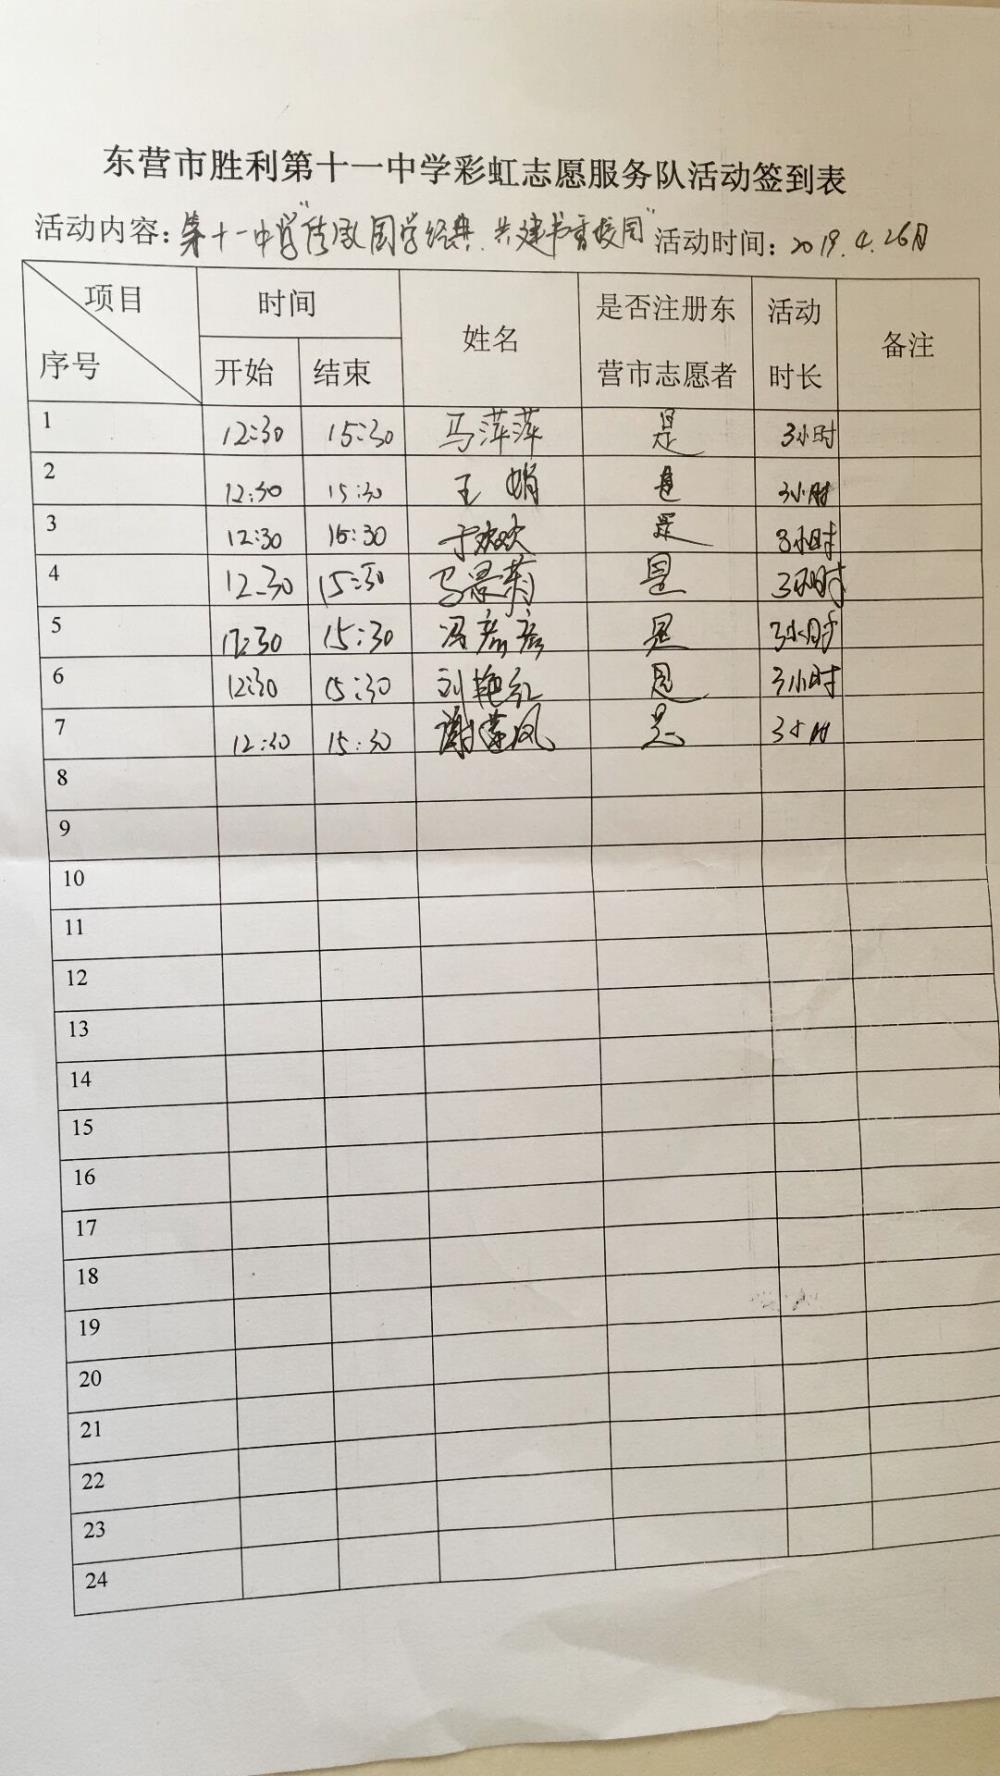 东营市胜利第十一中学彩虹志愿服务队活动签到表
活动内容：第十一中学"传承国学经典、共建书香校园" 活动时间：2019.4.26日
项目 时间 姓名 是否注册东营市志愿者 活动时长 备注
序号 开始 结束
1 12:30 15:30 马萍萍 是 3小时
2 12:30 15:30 王娟 是 3小时
3 12:30 15:30 于欢欢 是 3小时
4 12:30 15:30 马景菊 是 3小时
5 12:30 15:30 冯彦彦 是 3小时
6 12:30 15:30 刘艳红 是 3小时
7 12:30 15:30 谢莲凤 是 3小时
8
9
10
11
12
13
14
15
16
17
18
19
20
21
22
23
24